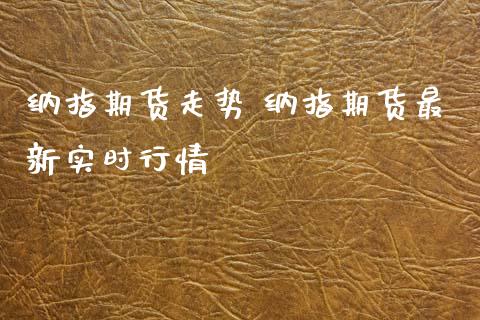 纳指期货走势 纳指期货最
新实时行情